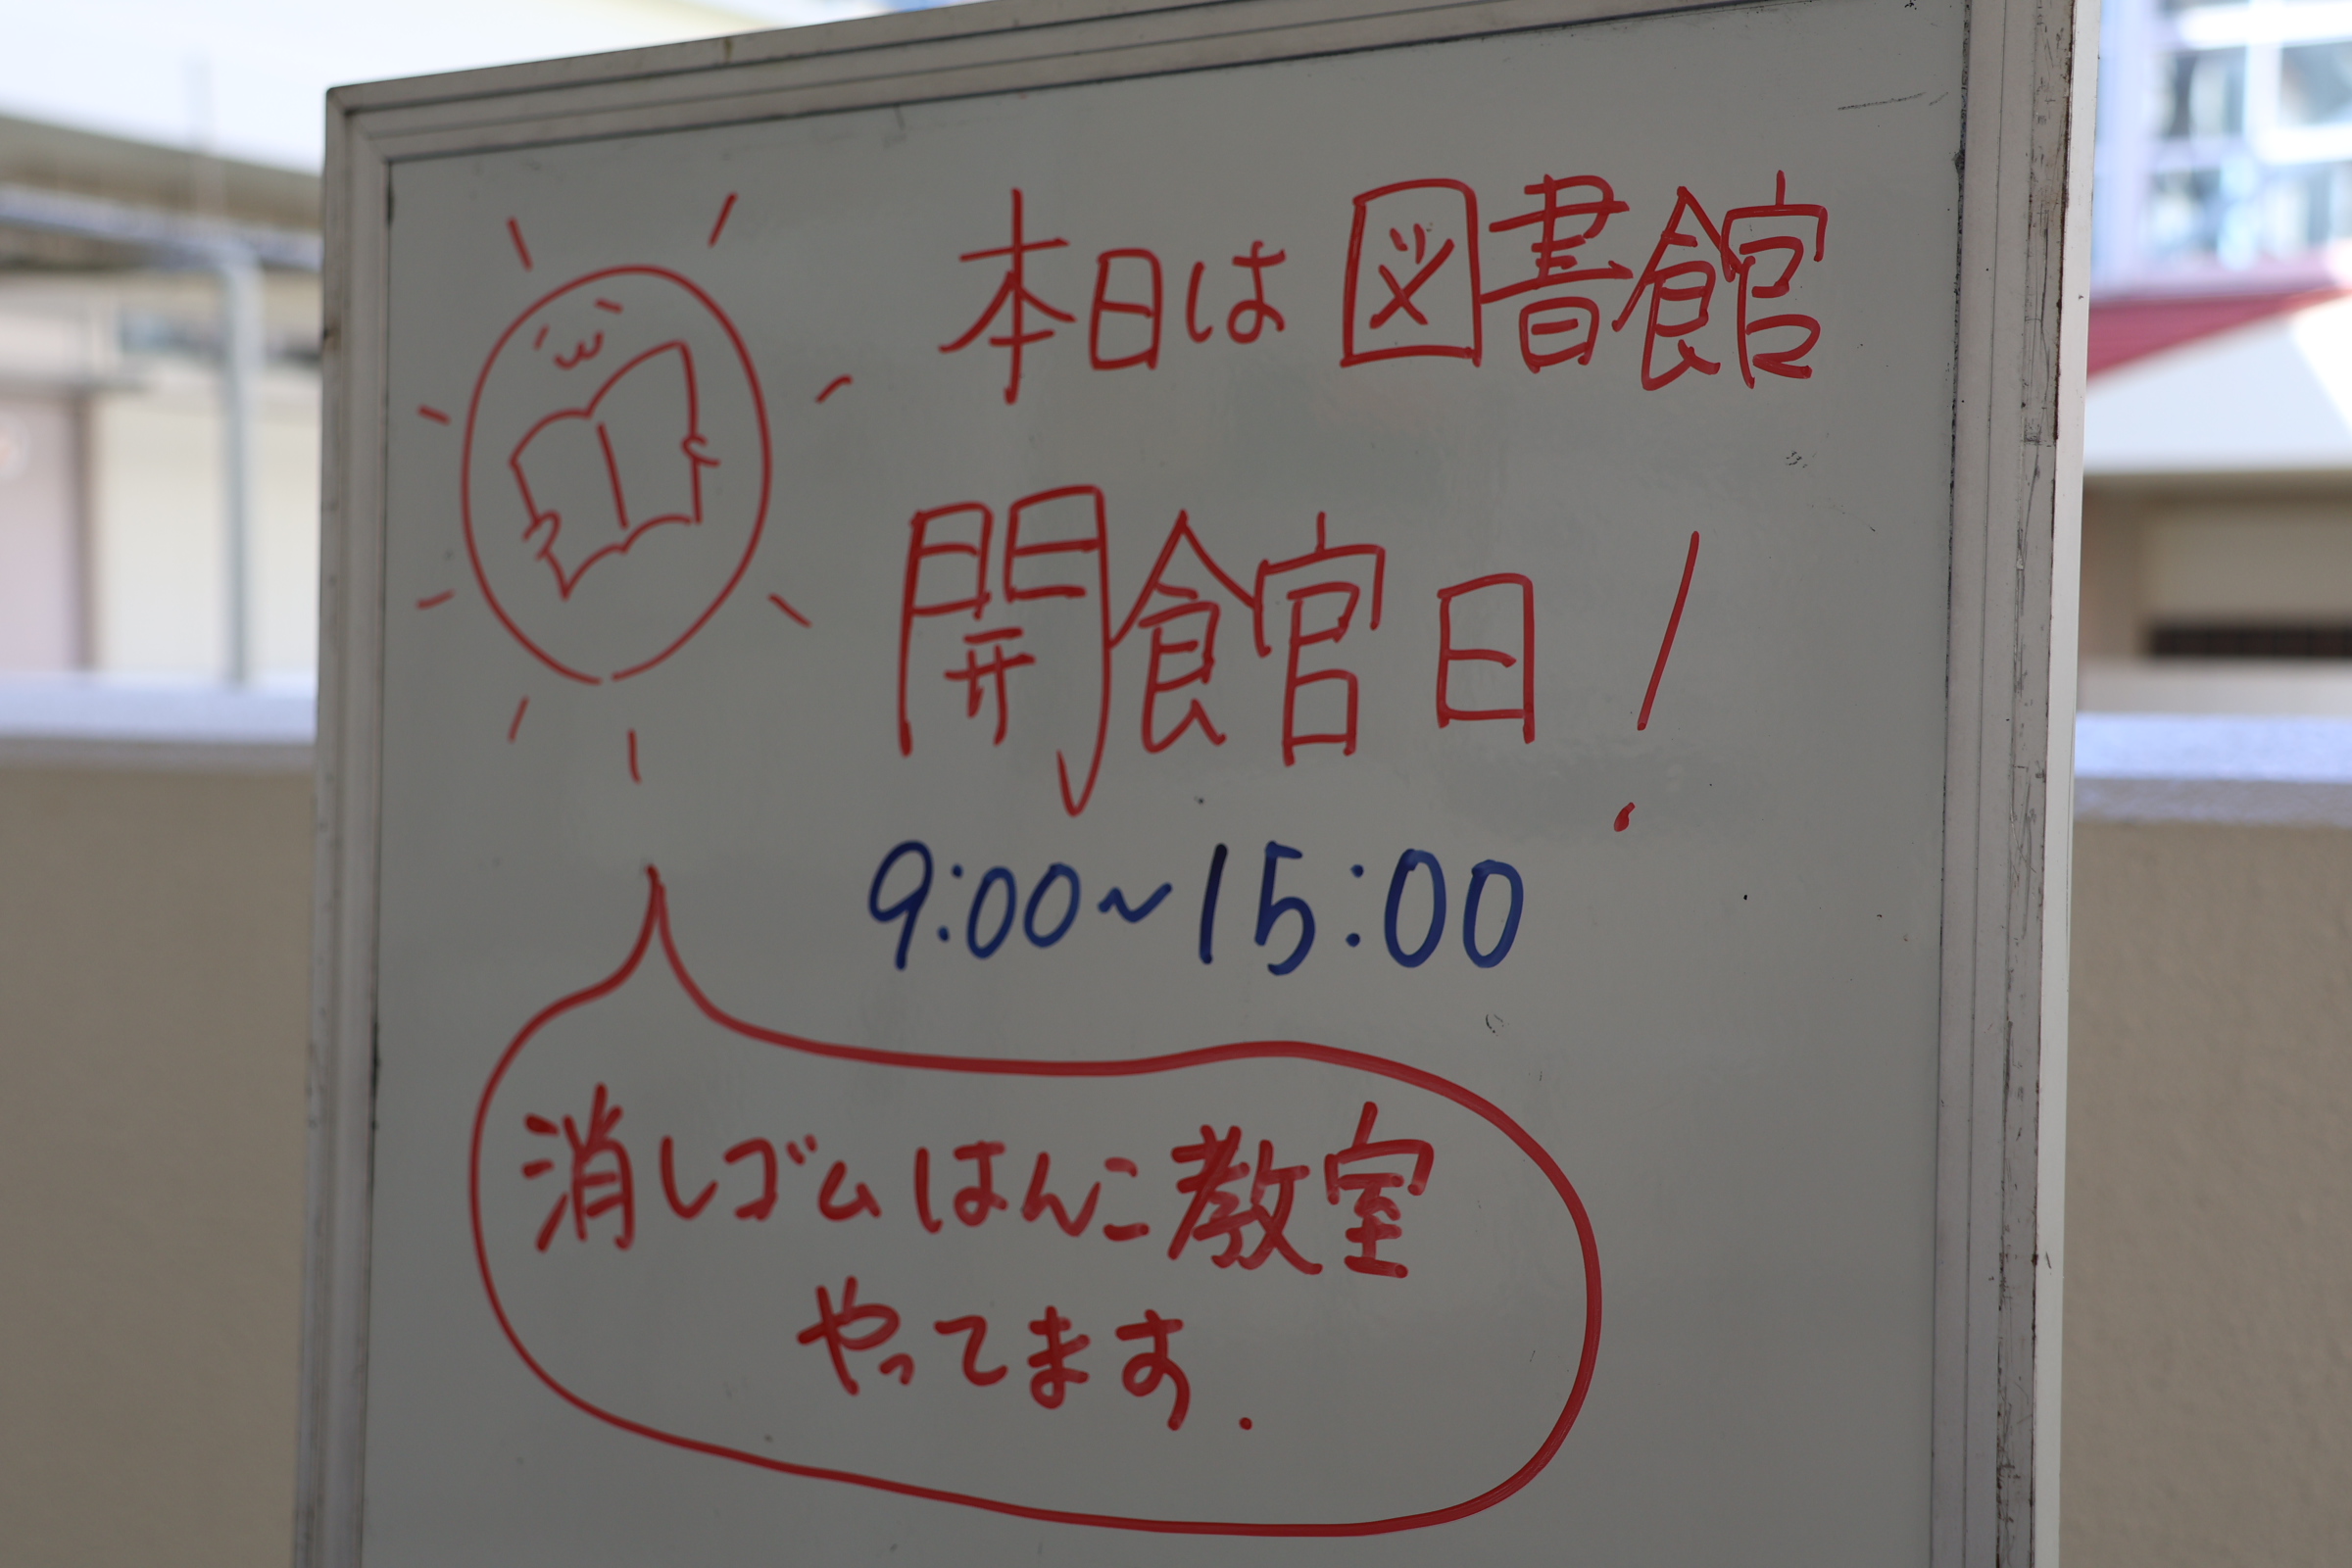 本日は図書館
開館日!
9:00~15:00
消しゴムはんこ教室
やってます.